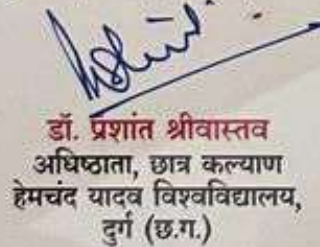 डॉ. प्रशांत श्रीवास्तव
अधिष्ठाता, छात्र कल्याण
हेमचंद यादव विश्वविद्यालय,
दुर्ग (छ.ग.)